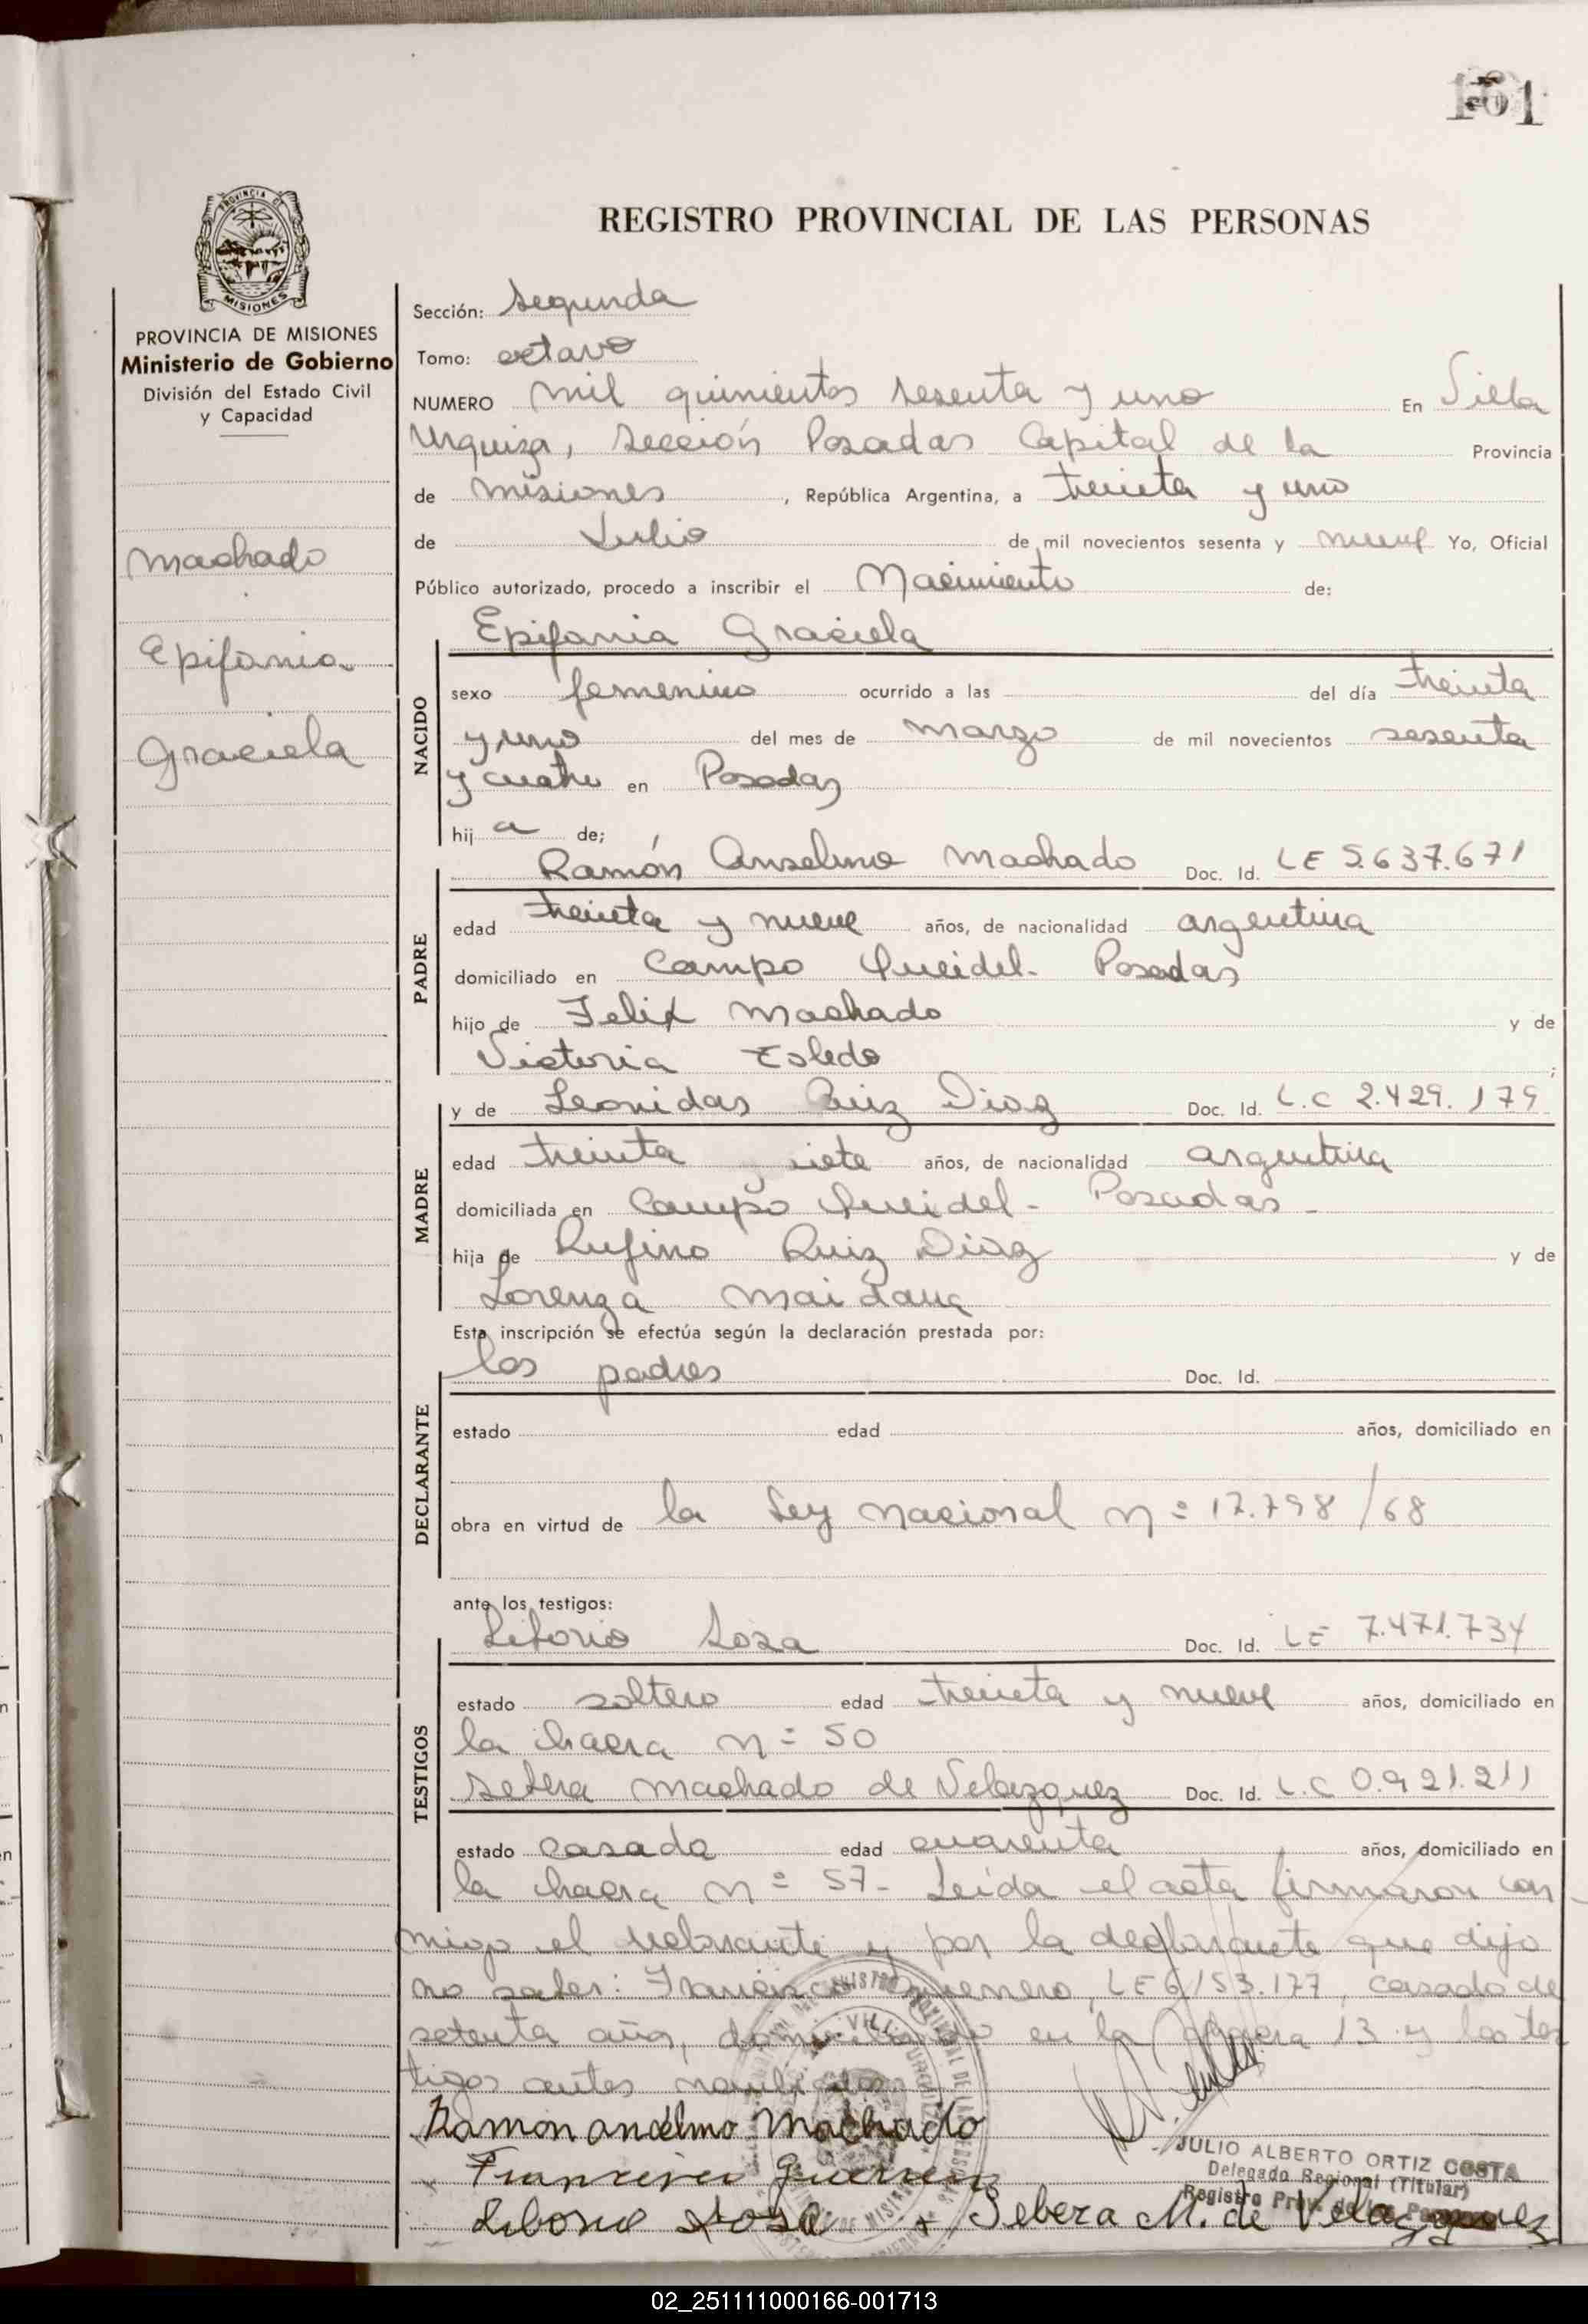 161
REGISTRO PROVINCIAL DE LAS PERSONAS
PROVINCIA DE MISIONES
Ministerio de Gobierno
División del Estado Civil
y Capacidad
Machado
Epifania
Graciela
Sección: Segunda
Tomo: octavo
NUMERO mil quinientos sesenta y uno En Villa
Urquiza, Sección Posadas Capital de la Provincia
de Misiones, República Argentina, a treinta y uno
de Julio de mil novecientos sesenta y nueve Yo, Oficial
Público autorizado, procedo a inscribir el Nacimiento de:
Epifania Graciela
NACIDO
sexo femenino ocurrido a las del día treinta
y uno del mes de marzo de mil novecientos sesenta
y cuatro en Posadas
hij a de;
PADRE
Ramón Anselmo Machado Doc. Id. LE 5.637.671
edad treinta y nueve años, de nacionalidad argentina
domiciliado en Campo - Posadas
hijo de Felix Machado y de
Victoria Toledo
MADRE
y de Leonidas Ruiz Diaz Doc. Id. L.C 2.429.179
edad treinta y siete años, de nacionalidad argentina
domiciliada en Campo - Posadas -
hija de Rufino Ruiz Diaz y de
Lorenza Maidana
Esta inscripción se efectúa según la declaración prestada por:
DECLARANTE
los padres Doc. Id.
estado edad años, domiciliado en
obra en virtud de la Ley nacional nº 17.798/68
ante los testigos:
TESTIGOS
Liborio Sosa Doc. Id. LE 7.471.734
estado soltero edad treinta y nueve años, domiciliado en
la chacra nº 50
Sebera Machado de Velazquez Doc. Id. L.C 0.921.211
estado casada edad cuarenta años, domiciliado en
la chacra nº 57 - Leida el acta firmaron con
migo el declarante y por la declarante que dijo
no saber: Francisco Guerrero, LE 6153.177, casado de
setenta años, domiciliado en la chacra 13 y los tes
tigos antes nombrados
Ramon ancelmo Machado
Francisco Guerrero
Liborio Sosa
Sebera M. de Velazquez
JULIO ALBERTO ORTIZ COSTA
Delegado Regional (Titular)
Registro Prov. de las Personas
02_251111000166-001713